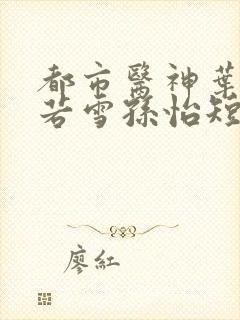 都市醫神葉
若雪孫怡短
廖紅